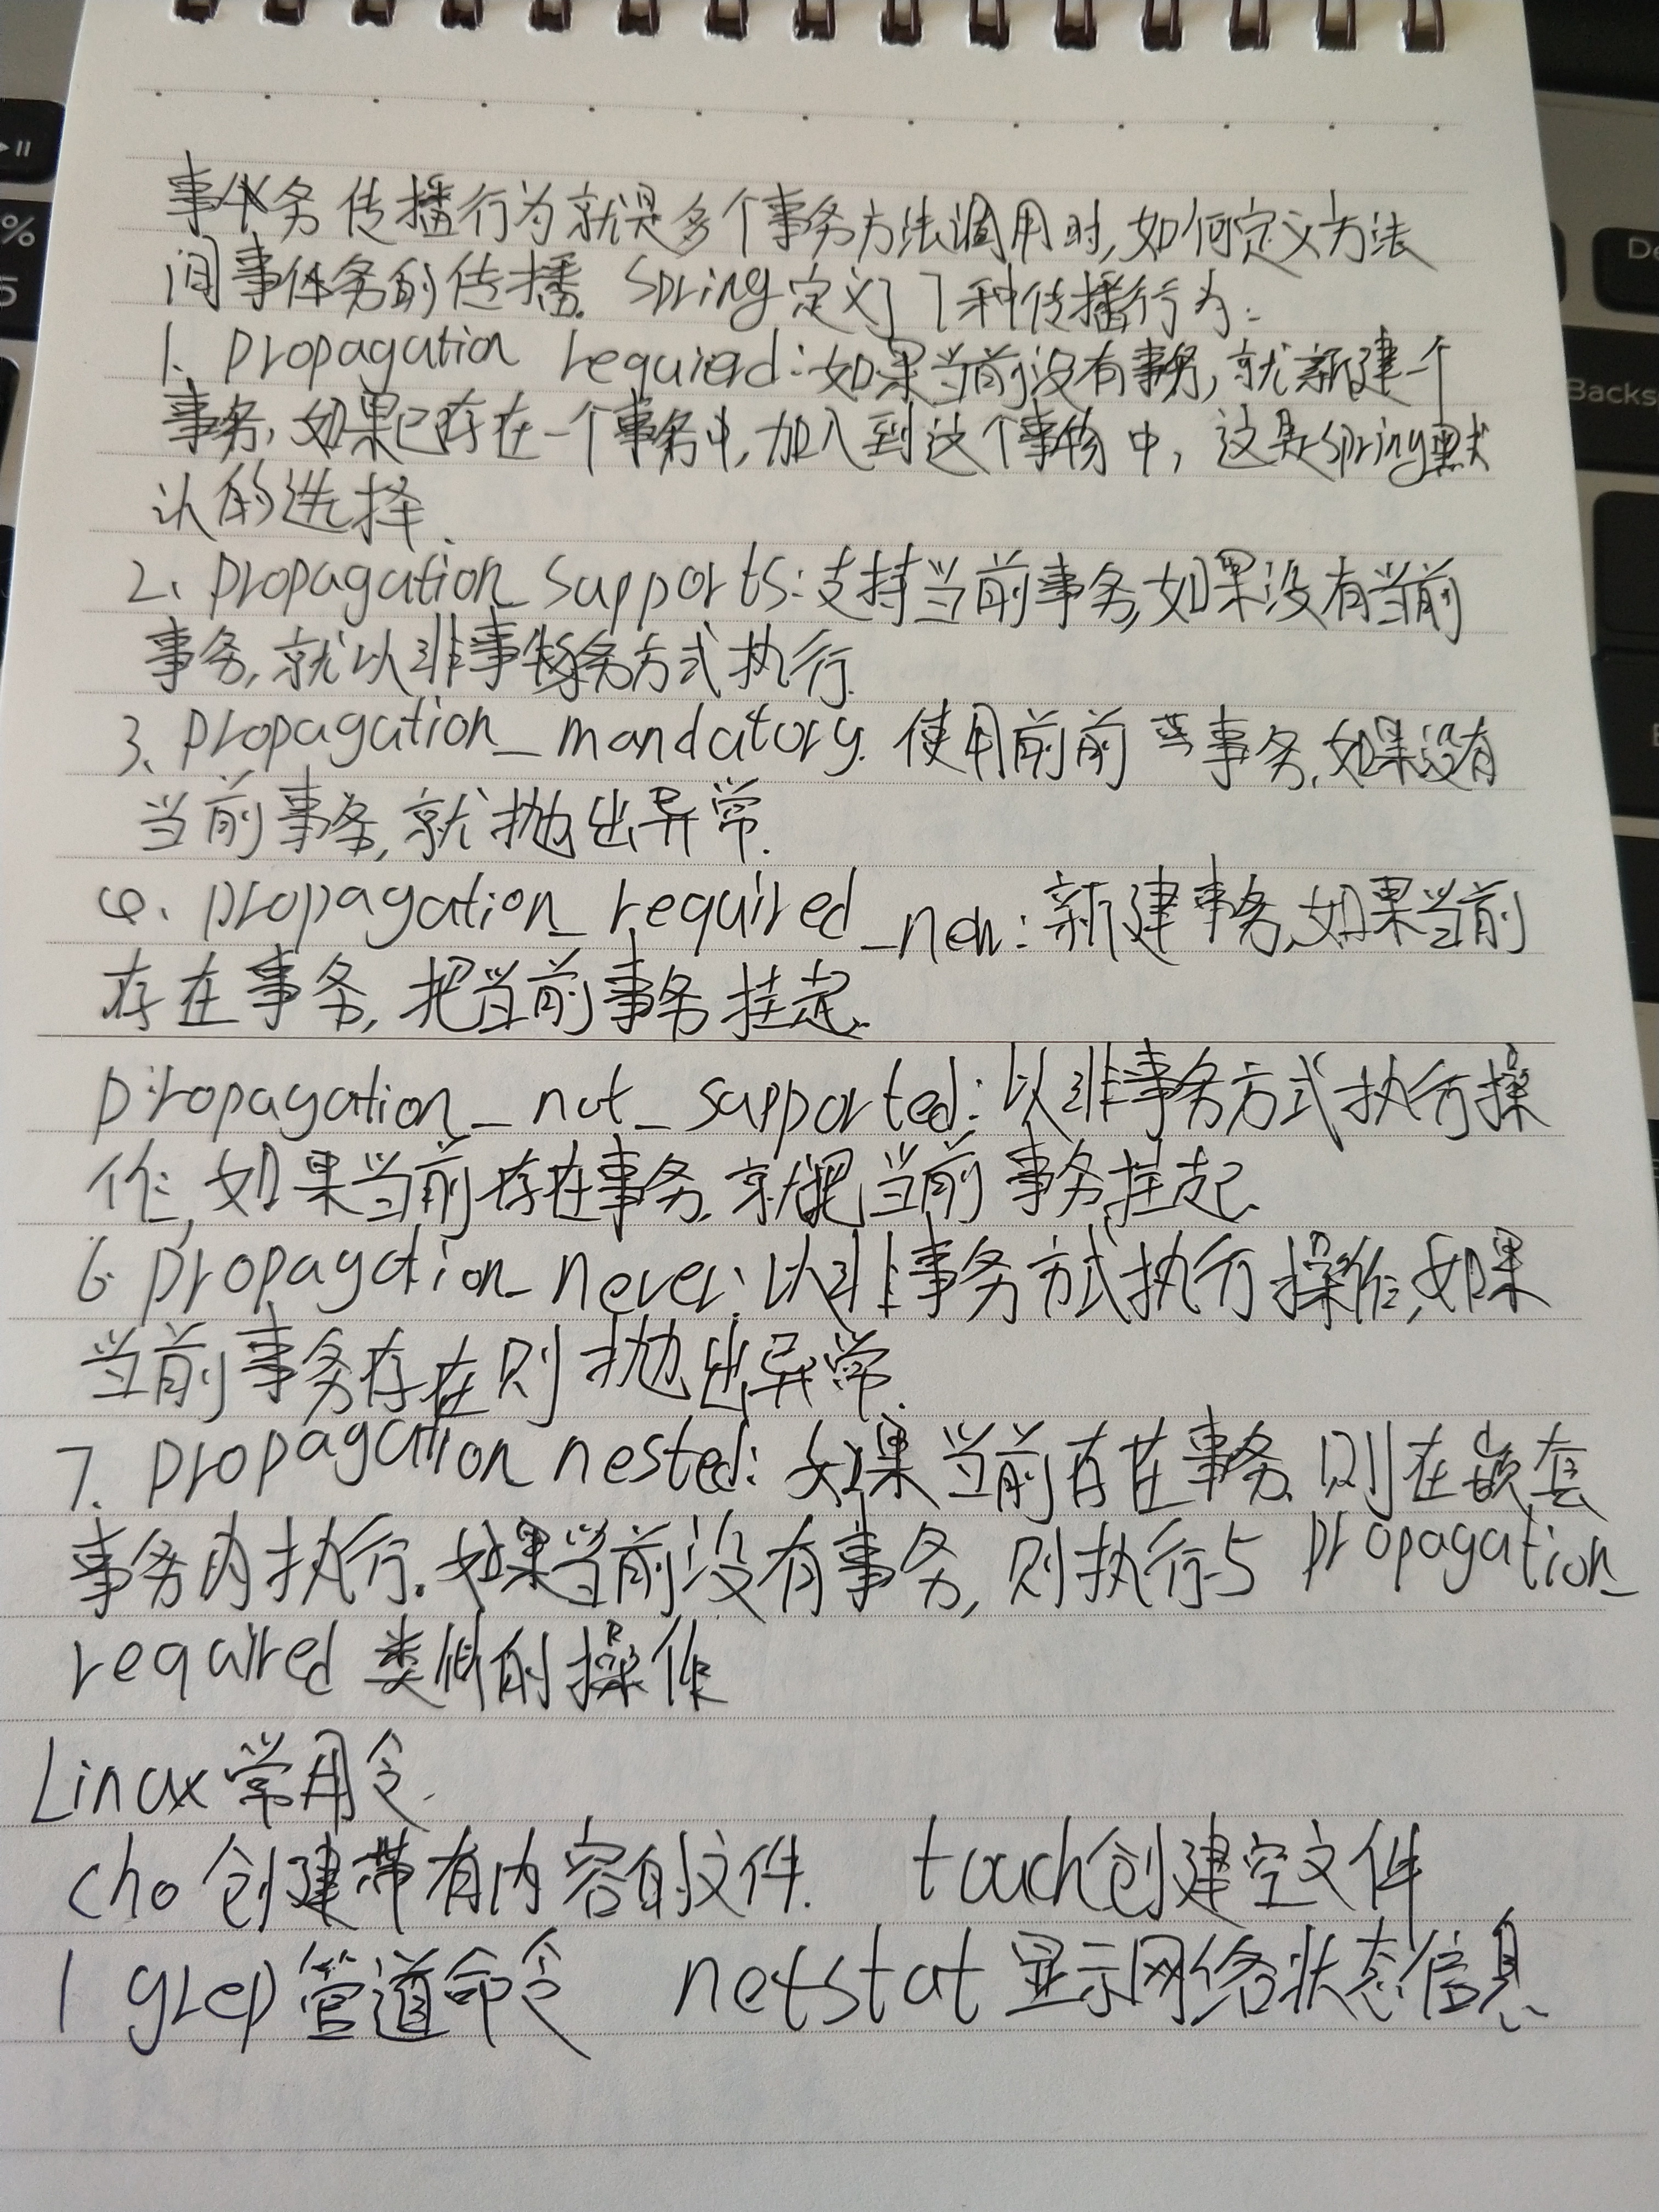 事务传播行为就是多个事务方法调用时,如何定义方法
间事务的传播. Spring定义了7种传播行为:
1、propagation requierd:如果当前没有事务,就新建一个
事务,如果已存在一个事务中,加入到这个事物中,这是spring默
认的选择.
2、propagation_supports:支持当前事务,如果没有当前
事务,就以非事务方式执行.
3、propagation_mandatory.使用前前当事务,如果没有
当前事务,就抛出异常.
4、propagation_required_new:新建事务,如果当前
存在事务,把当前事务挂起.
propagation_not_supported:以非事务方式执行操
作,如果当前存在事务,就把当前事务挂起.
6 propagation_never:以非事务方式执行操作,如果
当前事务存在则抛出异常.
7. propagation nested:如果当前存在事务,则在嵌套
事务内执行.如果当前没有事务,则执行与propagation_
required类似的操作
Linux常用令.
cho创建带有内容的文件. touch创建空文件
| grep管道命令 netstat显示网络状态信息.
De
Backs
%
5